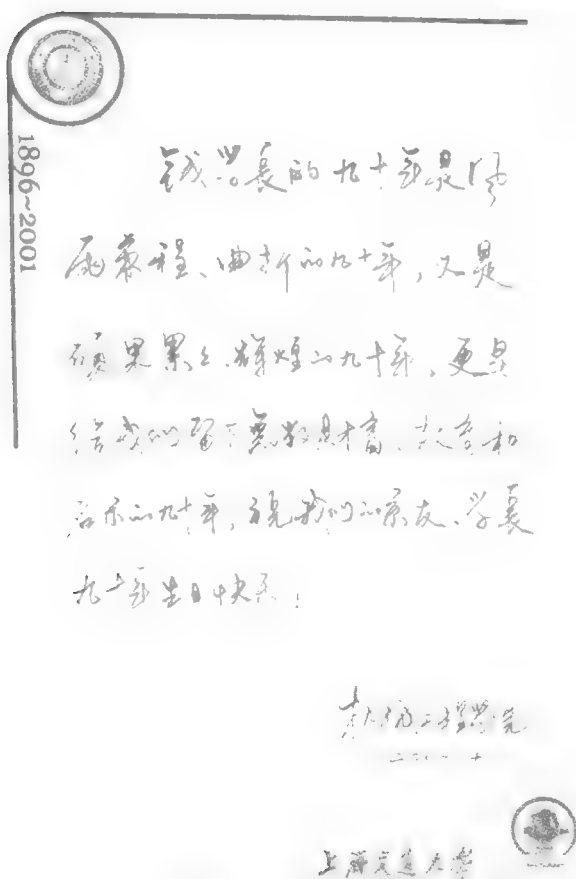 1896~2001
钱学长的九十年是风
雨兼程、曲折的九十年，又是
硕果累累、辉煌的九十年，更是
给我们留下无数财富、故事和
启示的九十年，祝我们的亲友、学长
九十年生日快乐！
机械工程学院
二〇〇一、十
上海交通大学